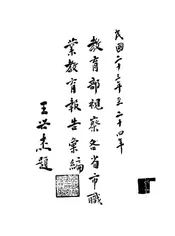 民國二十三年至二十四年
教育部視察各省市職
業教育報告彙編
王世杰題